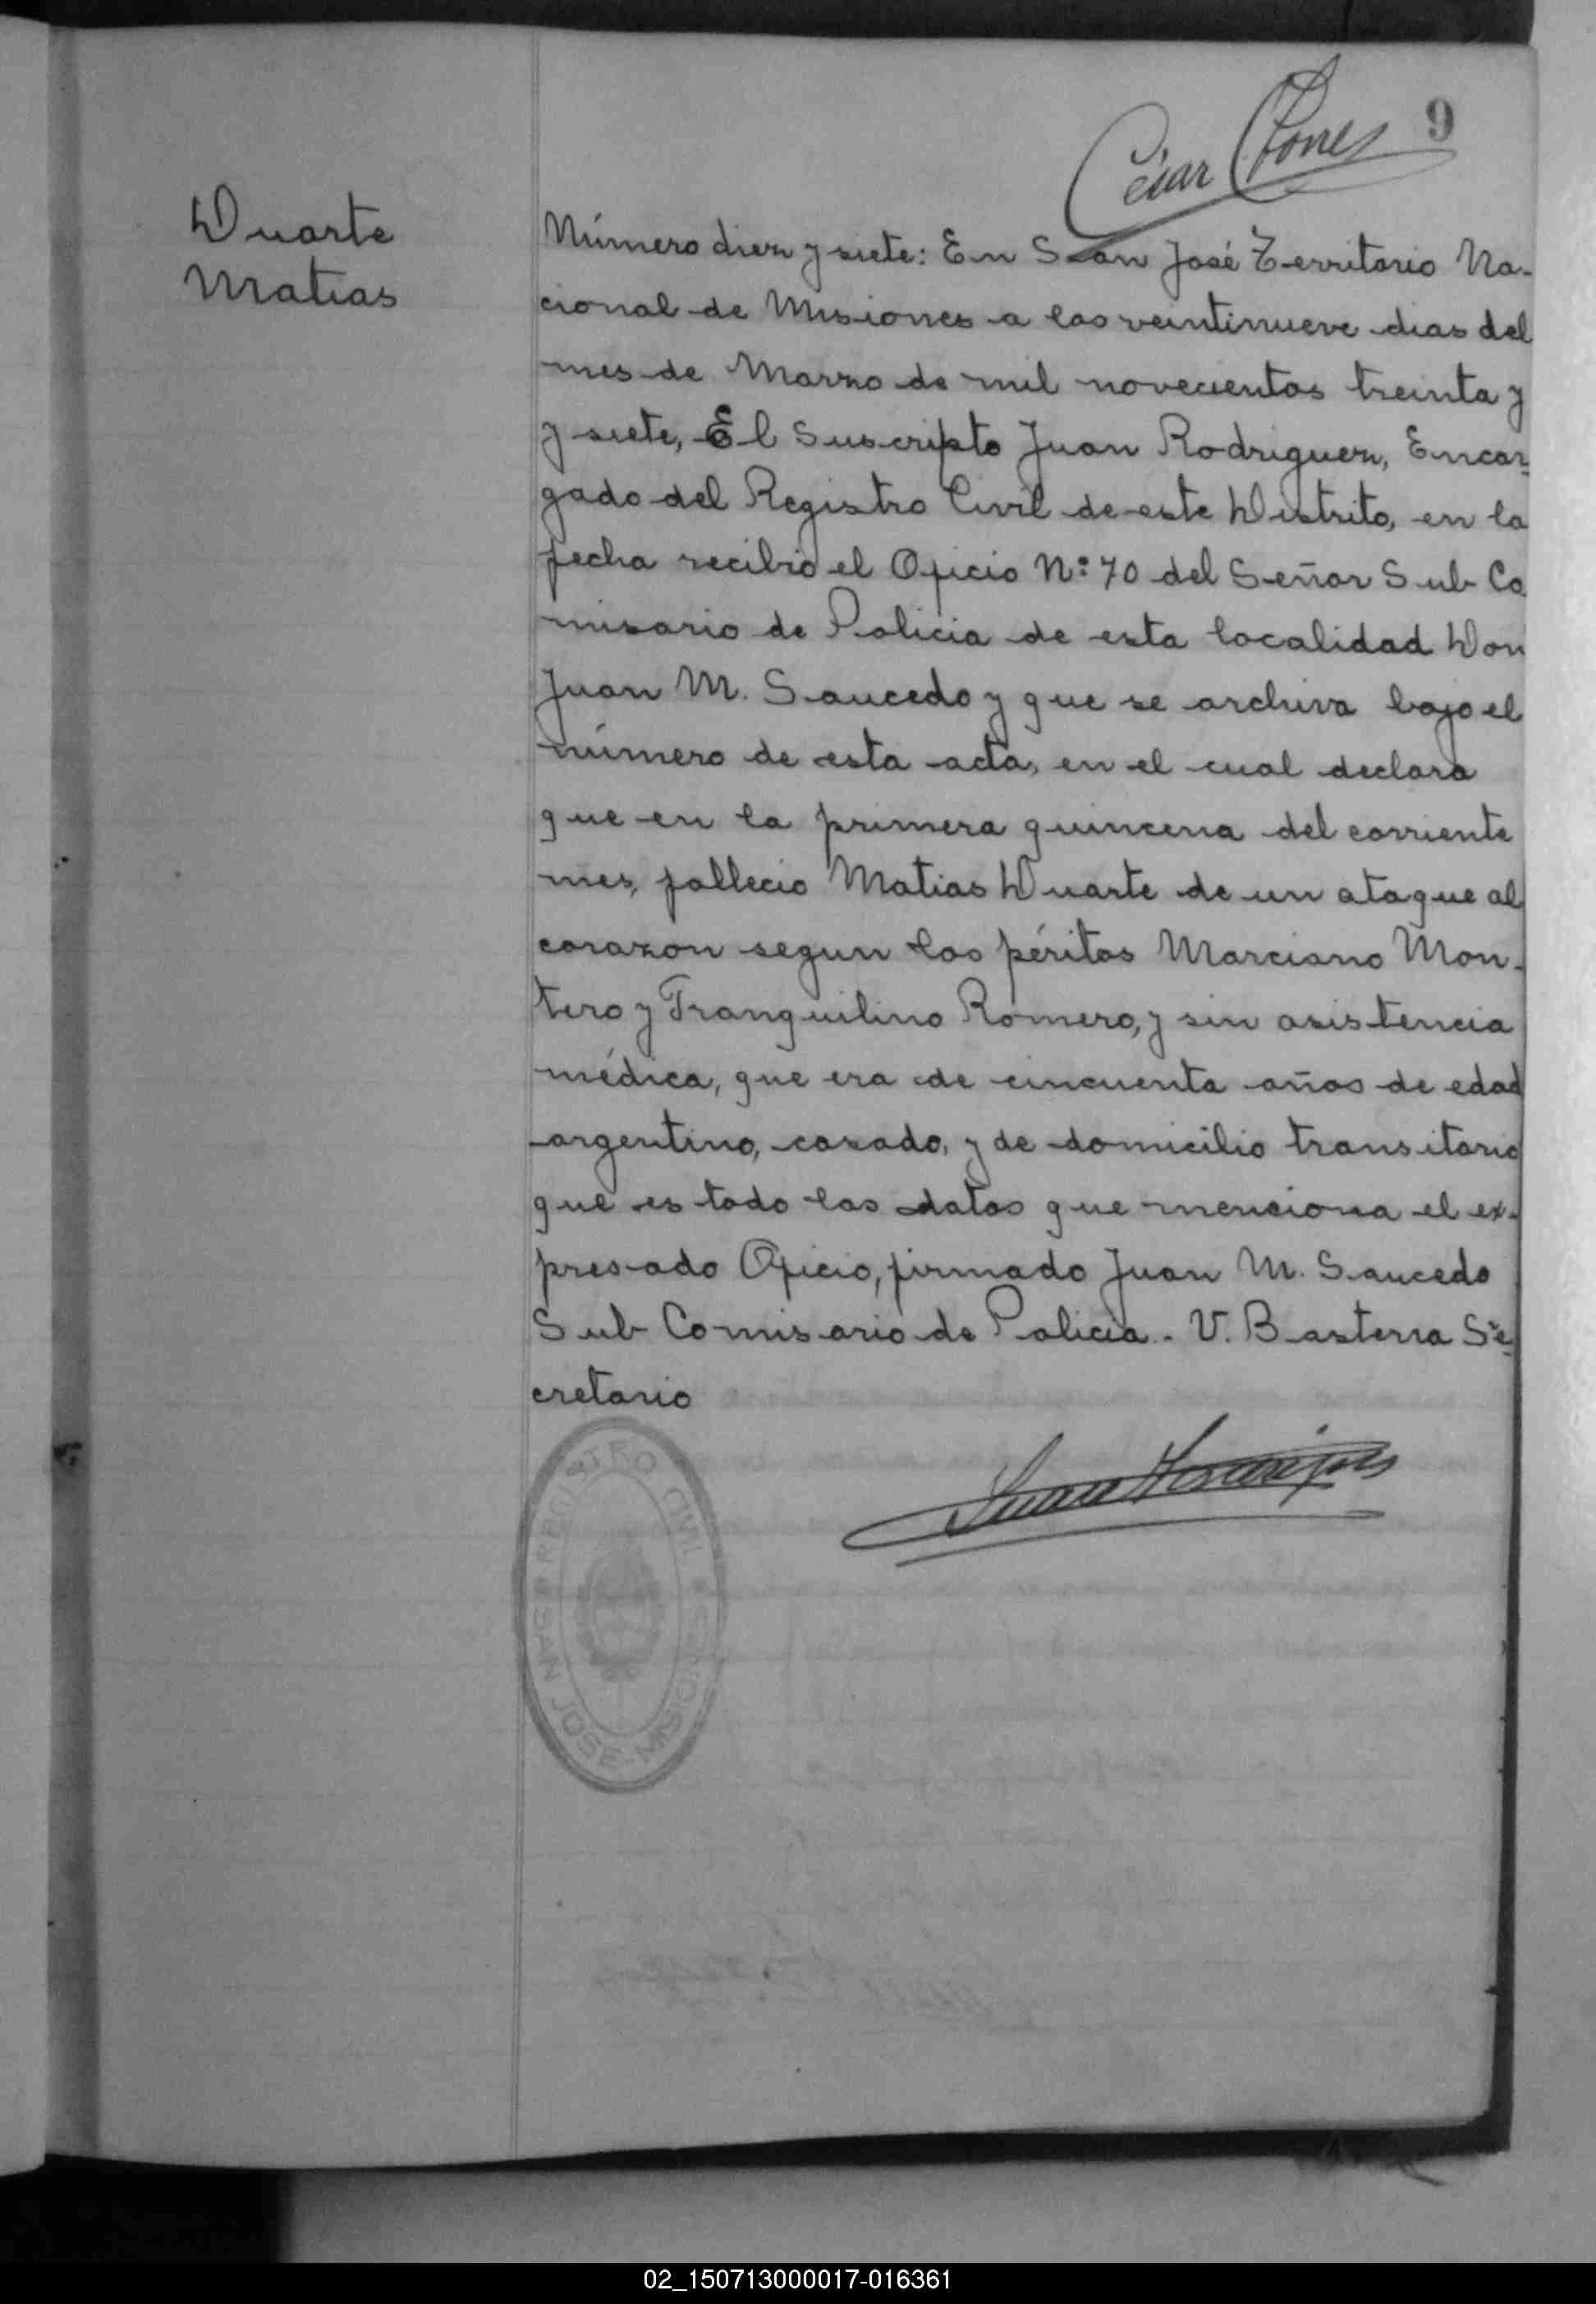 9
César
Duarte
Matias
Número diez y siete: En San José Territorio Na-
cional de Misiones a los veintinueve dias del
mes de Marzo de mil novecientos treinta y
y siete, El Suscripto Juan Rodriguez, Encar-
gado del Registro Civil de este Distrito, en la
fecha recibió el Oficio Nº 70 del Señor Sub Co
misario de Policia de esta localidad Don
Juan M. Saucedo y que se archiva bajo el
número de esta acta, en el cual declara
que en la primera quincena del corriente
mes, fallecio Matias Duarte de un ataque al
corazon segun los péritos Marciano Mon-
tero y Tranquilino Romero, y sin asistencia
médica, que era de cincuenta años de edad
argentino, casado, y de domicilio transitorio
que es todo los datos que menciona el ex-
presado Oficio, firmado Juan M. Saucedo
Sub Comisario de Policia - V. Basterra Se-
cretario
REGISTRO CIVIL
SAN JOSE-MISIONES
02_150713000017-016361